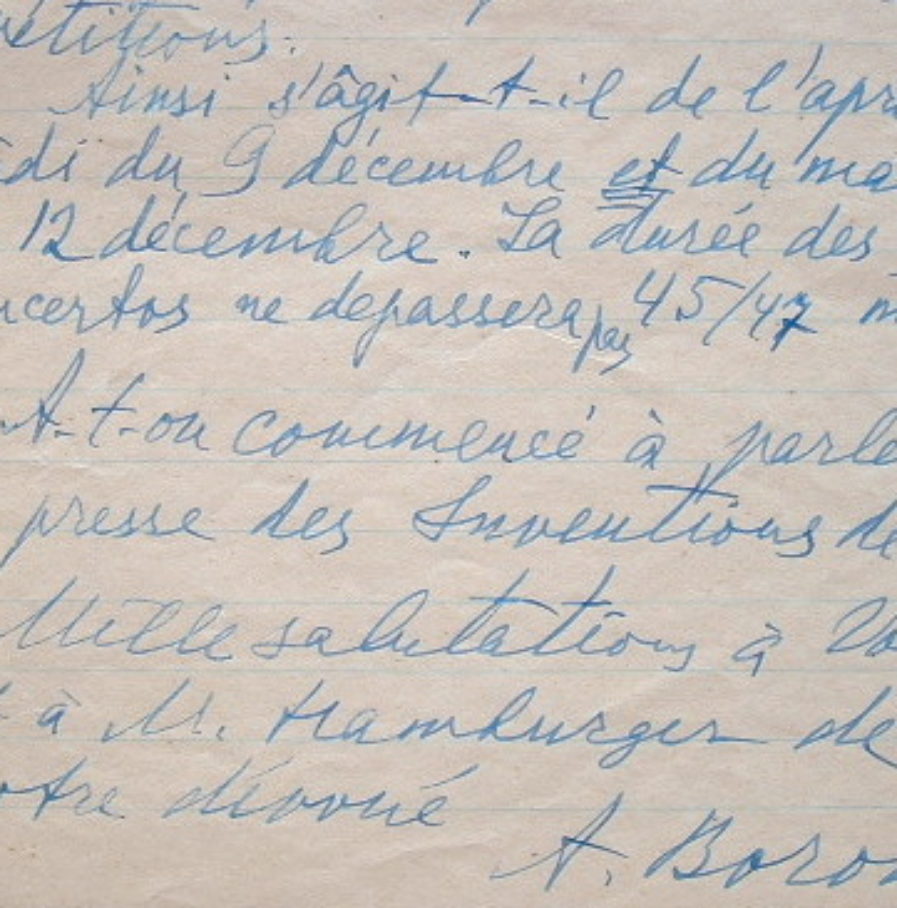 étitions.
Ainsi s'âgit-t-il de l'apr
di du 9 décembre et du ma
12 décembre. La durée des
ncertos ne depassera pas 45/47 m
A-t-on commencé à parle
presse des Inventions de
Mille salutations à Vo
à M. Hamburger de
otre dévoué
A. Boro